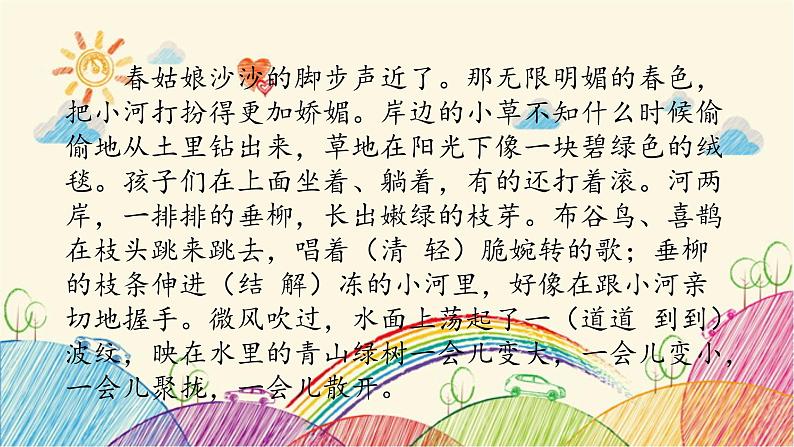 春姑娘沙沙的脚步声近了。那无限明媚的春色，
把小河打扮得更加娇媚。岸边的小草不知什么时候偷
偷地从土里钻出来，草地在阳光下像一块碧绿色的绒
毯。孩子们在上面坐着、躺着，有的还打着滚。河两
岸，一排排的垂柳，长出嫩绿的枝芽。布谷鸟、喜鹊
在枝头跳来跳去，唱着（清 轻）脆婉转的歌；垂柳
的枝条伸进（结 解）冻的小河里，好像在跟小河亲
切地握手。微风吹过，水面上荡起了一（道道 到到）
波纹，映在水里的青山绿树一会儿变大，一会儿变小，
一会儿聚拢，一会儿散开。